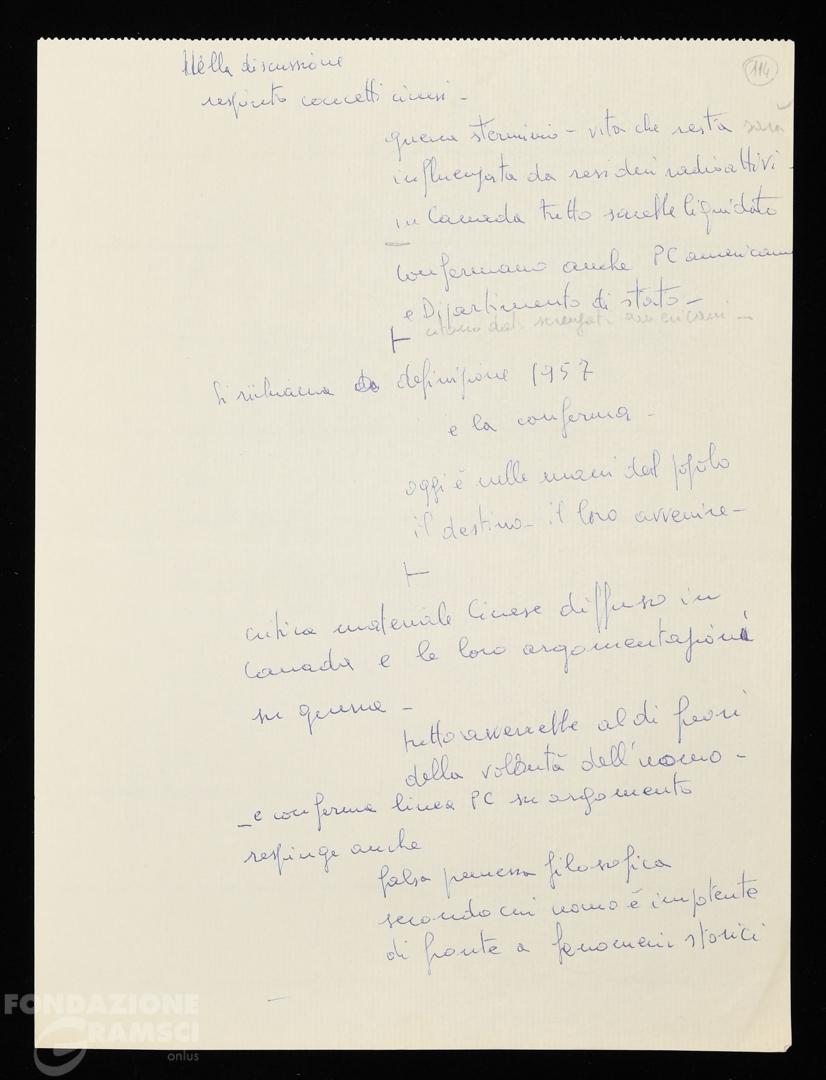 114
Nella discussione
respinto concetti cinesi -
guerra sterminio - vita che resta sarà
influenzata da residui radioattivi -
in Canada tutto sarebbe liquidato
confermano anche PC americano
e Dipartimento di stato -
citano dati scienziati americani -
Si richiama a definizione 1957
e la conferma -
oggi è nelle mani del popolo
il destino - il loro avvenire -
critica materiale Cinese diffuso in
Canada e le loro argomentazioni
su guerra -
tutto avverrebbe al di fuori
della volontà dell'uomo -
- e conferma linea PC su argomento
respinge anche
falsa premessa filosofica
secondo cui uomo è impotente
di fronte a fenomeni storici
FONDAZIONE
GRAMSCI
onlus